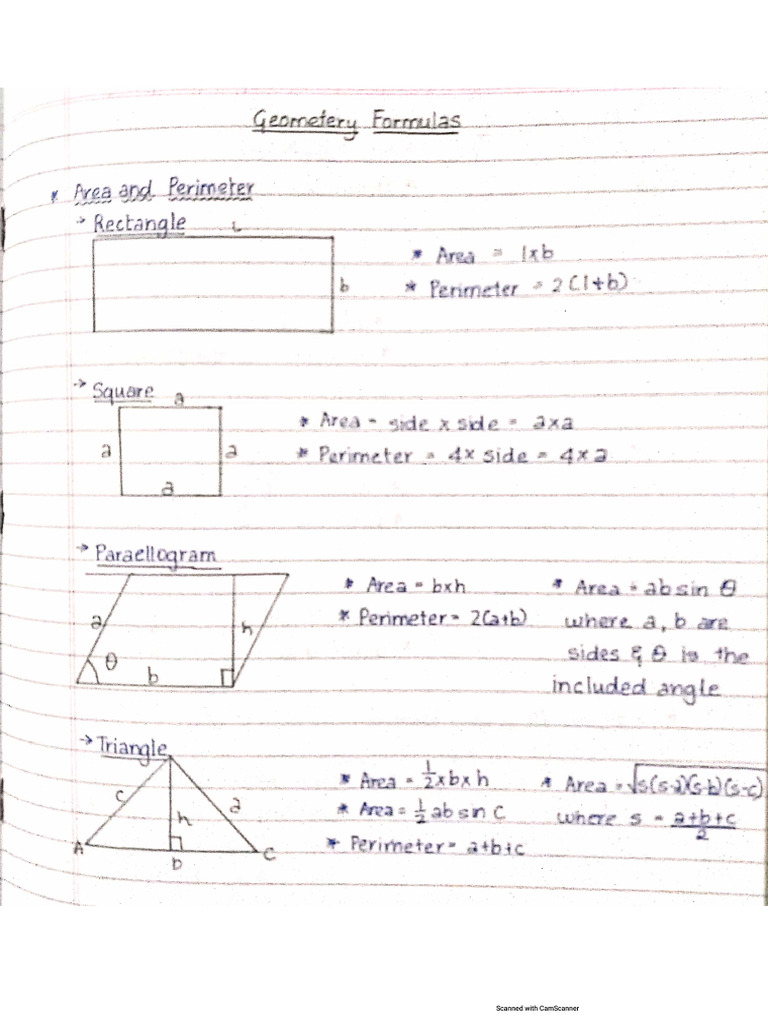 Geometery Formulas
* Area and Perimeter
→ Rectangle
l
b
* Area = l×b
* Perimeter = 2(l+b)
→ Square
a
a
a
a
* Area = side × side = a×a
* Perimeter = 4× side = 4×a
→ Paraellogram
a
h
θ
b
* Area = b×h
* Perimeter = 2(a+b)
* Area = ab sin θ
where a, b are
sides & θ is the
included angle
→ Triangle
c
a
h
A
b
C
* Area = 1/2 ×b×h
* Area = 1/2 ab sn C
* Perimeter = a+b+c
* Area = √s(s-a)(s-b)(s-c)
where s = a+b+c/2
Scanned with CamScanner